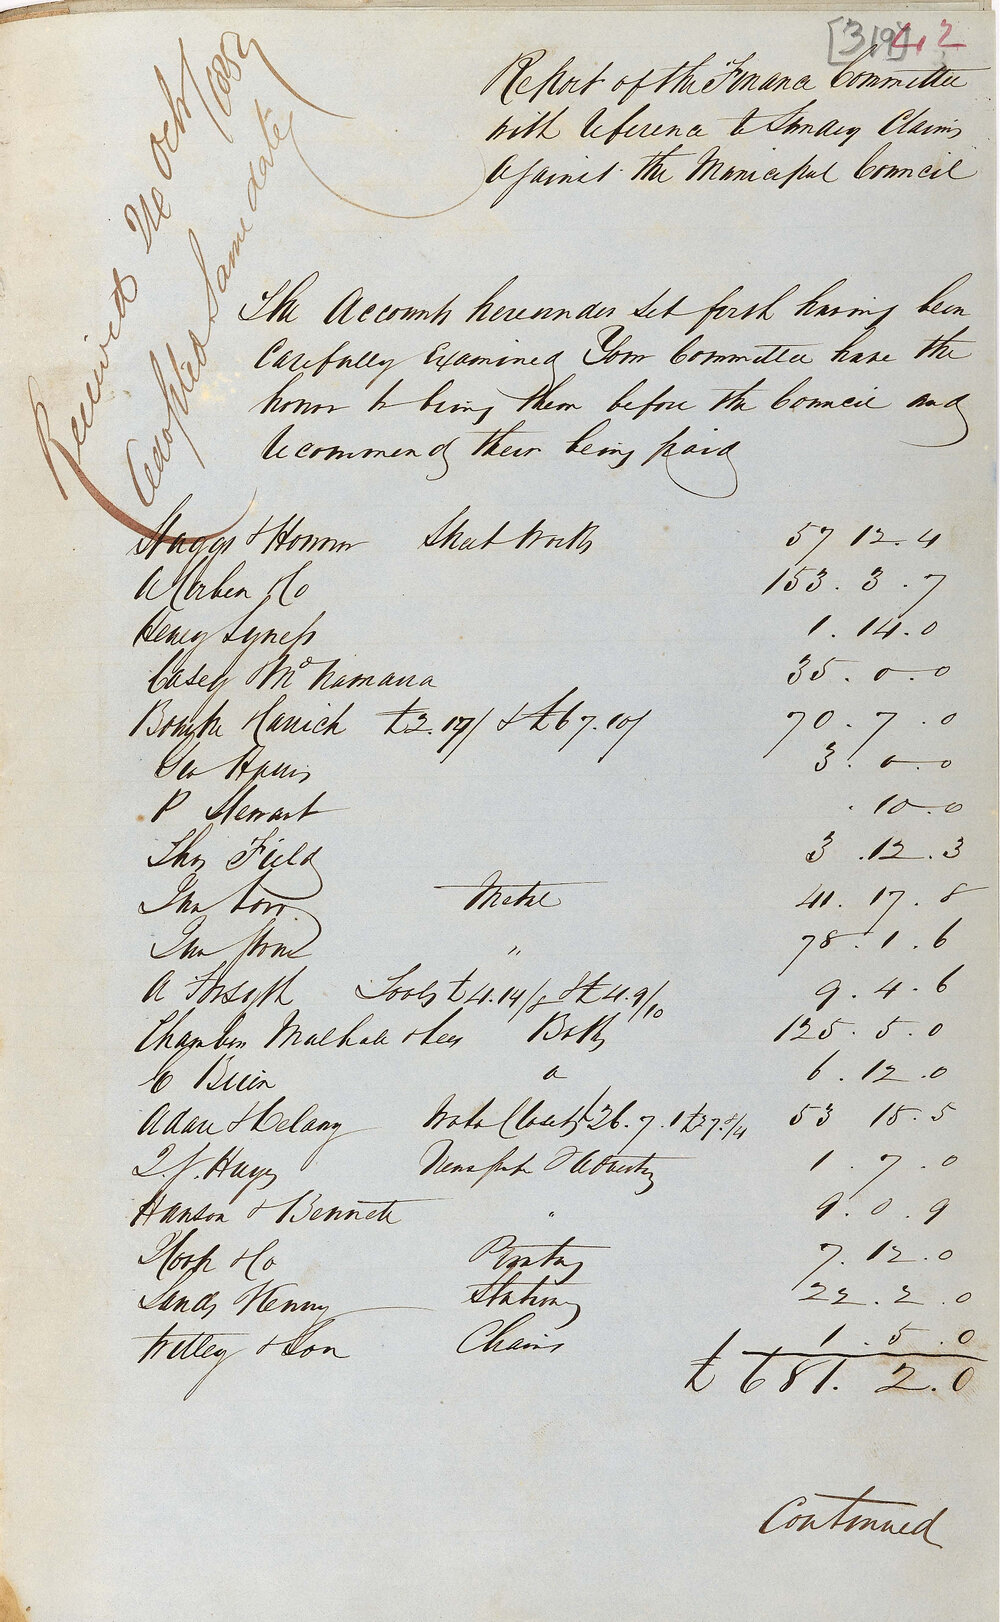 [319] 42
Report of the Finance Committee
with reference to Sundry Claims
against the Municipal Council
Received the Octr 1852
Adopted Same date
The Accounts hereunder set forth having been
Carefully Examined Your Committee have the
honor to bring them before the Council and
recommend their being paid
Staggs & Honnor Street Works 57 12. 4
A Corben & Co 153. 3. 7
Henry Lyness 1. 14. 0
Casey McNamara 35. 0. 0
£3. 17/ & £67. 10/ 70. 7. 0
Geo 3. 0. 0
P Stewart . 10. 0
Thos Field 3. 12. 3
Jno Metal 41. 17. 8
Jno " 78. 1. 6
A Forsyth Tools £4. 14/8 & £4. 9/10 9. 4. 6
125. 5. 0
6. 12. 0
Adam & Delany Water Closets £26. 7. 1 £27. 8/4 53 15. 5
Newspaper & Advertg 1. 7. 0
Hanson & Bennett " 9. 0. 9
& Co Printing 7. 12. 0
Sands Kenny Stationy 22. 2. 0
& Son Chains 1. 5. 0
£ 681. 2. 0
Continued